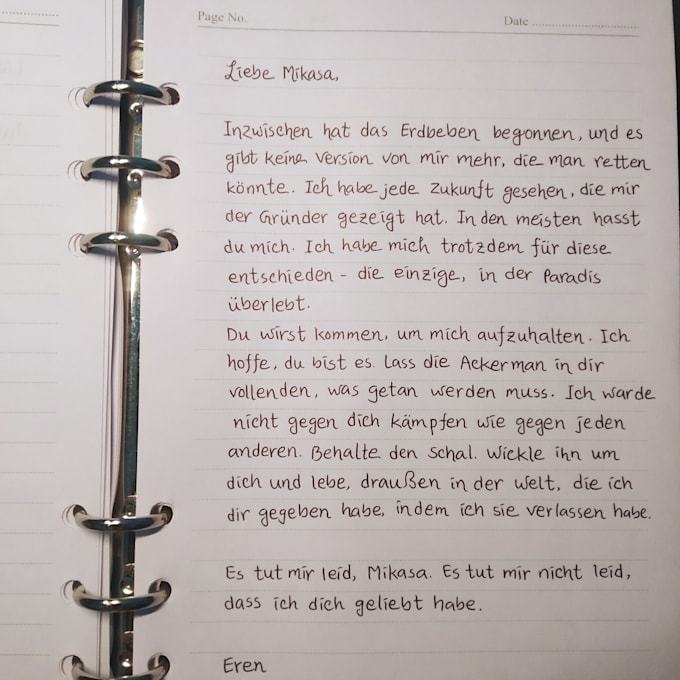 Page No.
Date
Liebe Mikasa,
Inzwischen hat das Erdbeben begonnen, und es
gibt keine version von mir mehr, die man retten
könnte. Ich habe jede zukunft gesehen, die mir
der Gründer gezeigt hat. In den meisten hasst
du mich. Ich habe mich trotzdem für diese
entschieden - die einzige, in der Paradis
überlebt.
Du wirst kommen, um mich aufzuhalten. Ich
hoffe, du bist es. Lass die Ackerman in dir
vollenden, was getan werden muss. Ich warde
nicht gegen dich kämpfen wie gegen jeden
anderen. Behalte den Schal. Wickle ihn um
dich und lebe, draußen in der Welt, die ich
dir gegeben habe, indem ich sie verlassen habe.
Es tut mir leid, Mikasa. Es tut mir nicht leid,
dass ich dich geliebt habe.
Eren